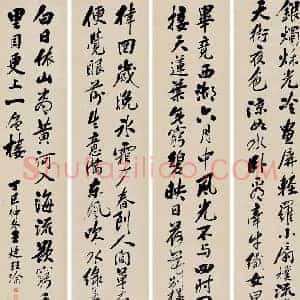 銀燭秋光冷畫屏輕羅小扇撲流
天街夜色涼如水卧看牽牛織女
畢竟西湖六月中風光不与四時
接天蓮葉無窮碧映日荷花別樣
律回歲晚冰霜少春到人間草
便覺眼前生意滿東風吹水綠
白日依山盡黃河入海流欲窮
里目更上一層樓
丁巳仲冬
Shufaziliao.com